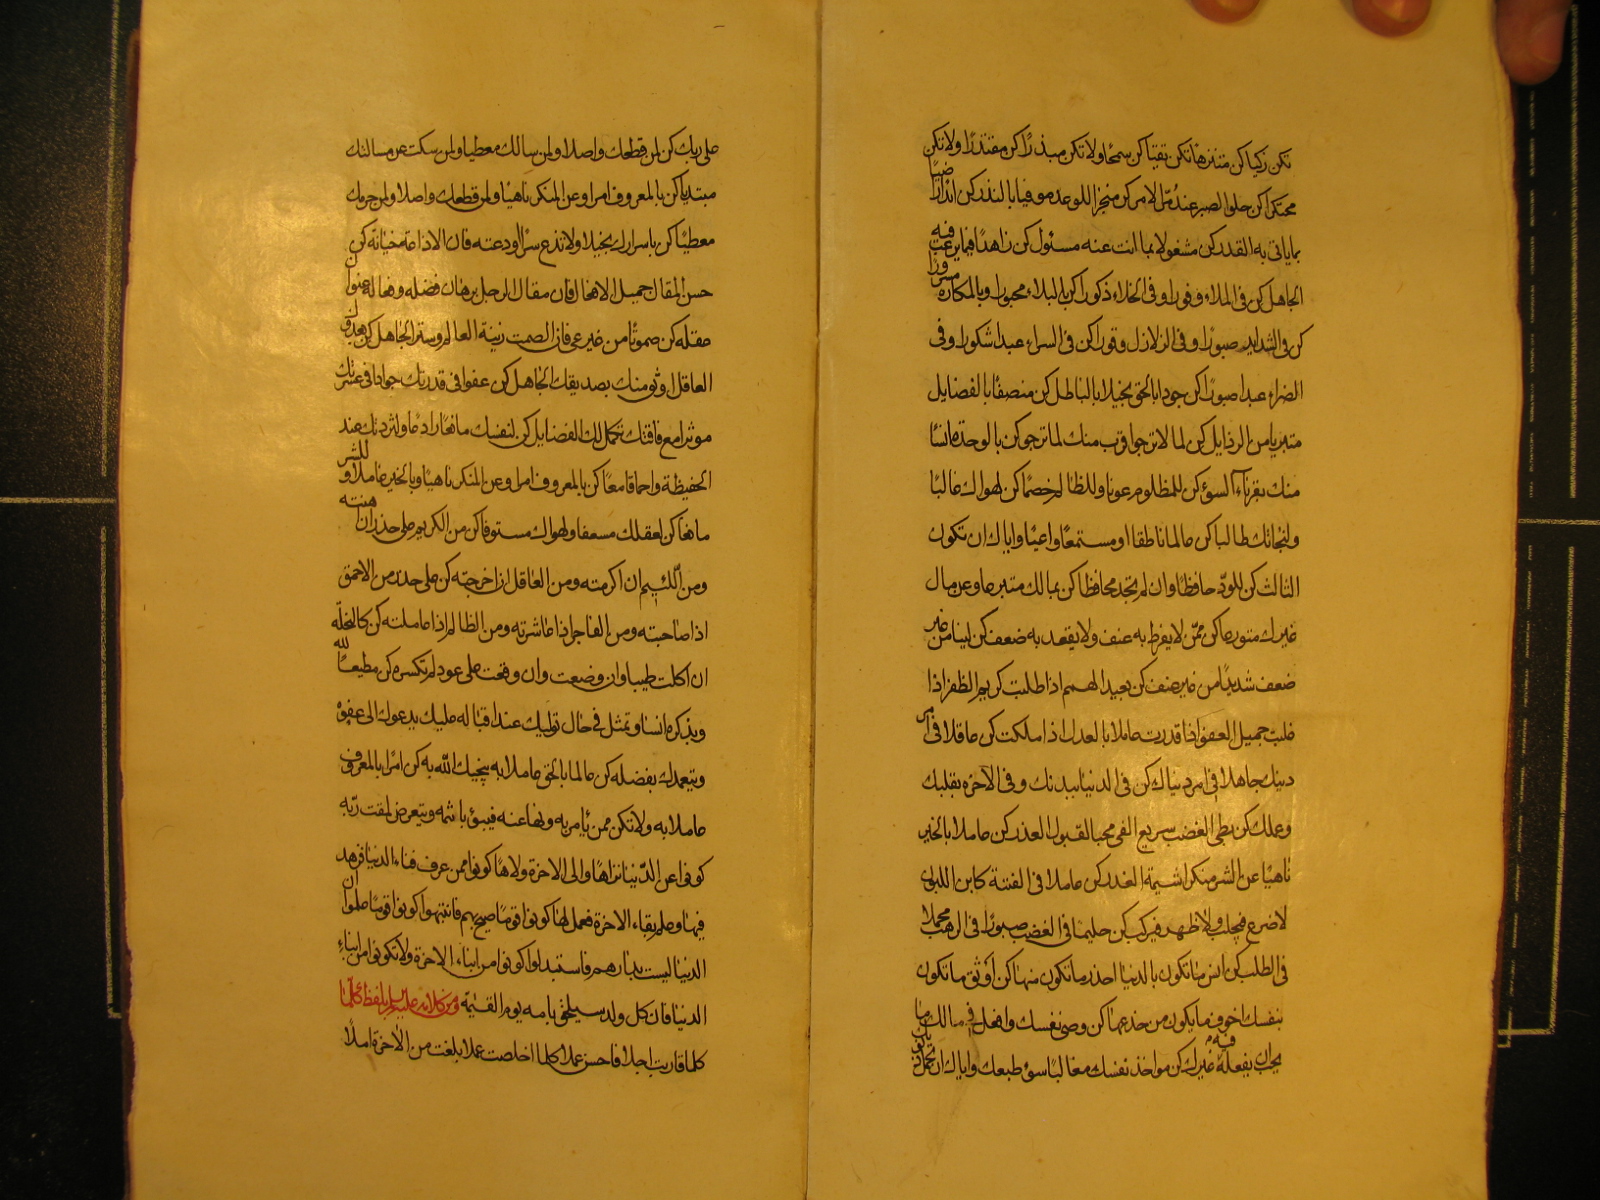 تكن زكيا كن متنزها تكن تقيا كن سمحا ولا تكن مبذرا كن مقتدرا ولا تكن
محتكرا كن حلو الصبر عند مرّ الامر كن منجزا للوعد موفيا بالنذر كن راضيا
بما ياتي به القدر كن مشغولا بما انت عنه مسئول كن زاهدا فيما يرغب فيه
الجاهل كن في الملاء وقورا وفي الخلاء ذكورا كن بالبلاء محبورا وبالمكاره مسرورا
كن في الشدايد صبورا وفي الزلازل وقورا كن في السراء عبدا شكورا وفي
الضراء عبدا صبورا كن جودا بالحق بخيلا بالباطل كن متصفا بالفضايل
متبريا من الرذايل كن لما لا ترجوا قرب منك لما ترجو كن بالوحدة مانسا
منك بقرناء السوء كن للمظلوم عونا وللظالم خصما كن لهواك غالبا
ولنجاتك طالبا كن عالما ناطقا او مستمعا واعيا واياك ان تكون
الثالث كن للودّ حافظا وان لم تجد محافظا كن بمالك متبرعا وعن مال
غيرك متورعا كن ممّن لا يفرط به عنف ولا يقعد به ضعف كن لينا من غير
ضعف شديدا من غير عنف كن بعيد الهمم اذا طلبت كريم الظفر اذا
غلبت جميل العفو اذا قدرت عاملا بالعدل اذا ملكت كن عاقلا في امر
دينك جاهلا في امر دنياك كن في الدنيا ببدنك وفي الآخرة بقلبك
وعملك كن بطي الغضب سريع الفي محبا لقبول العذر كن عاملا بالخير
ناهيا عن الشر منكرا شيمة الغدر كن عاملا في الفتنة كابن اللبون
لا ضرع فيحلب ولا ظهر فيركب كن حليما في الغضب صبورا في الرهب مجملا
في الطلب كن انس ما تكون بالدنيا احذر ما تكون منها كن اوثق ما تكون
بنفسك اخوف ما يكون من خدعها كن وصي نفسك وافعل في مالك ما
يحب ان يفعله فيه غيرك كن مواخذ نفسك مغالبا سوء طبعك واياك ان تحمل ذنوبك
على ربك كن لمن قطعك واصلا ولمن سالك معطيا ولمن سكت عن مسالتك
مبتديا كن بالمعروف امرا وعن المنكر ناهيا ولمن قطعك واصلا ولمن حرمك
معطيا كن باسرارك بخيلا ولا تذع سرا اودعته فان الاذاعة خيانة كن
حسن المقال جميل الافعال فان مقال الرجل برهان فضله وفعاله عنوان
عقله كن صموتا من غير عي فان الصمت زينة العالم وستر الجاهل كن بعدو
العاقل اوثق منك بصديقك الجاهل كن عفوا في قدرتك جوادا في عسرتك
موثرا مع فاقتك تكمل لك الفضايل كن لنفسك مانعا رادعا ولنزوتك عند
الحفيظة واقما قامعا كن بالمعروف امرا وعن المنكر ناهيا وبالخير عاملا وللشر
مانعا كن لعقلك مسعفا ولهواك مستوفا كن من الكريم على حذر ان هنته
ومن اللئيم ان اكرمته ومن العاقل ان احرجته كن على حذر من الاحمق
اذا صاحبته ومن الفاجر اذا عاشرته ومن الظالم اذا عاملته كن كالنحلة
ان اكلت طيبا وان وضعت وان وقعت على عود لم تكسره كن مطيعا لله
وبذكره انسا وتمثل في حال توليك عند اقباله عليك يدعوك الى عفوه
ويتعمدك بفضله كن عالما بالحق عاملا به ينجيك الله به كن امرا بالمعروف
عاملا به ولا تكن ممن يأمر به ونها عنه فيبؤ باثمه ويتعرض لمقت ربه
كونوا عن الدنيا نزاها والى الاخرة ولاها كونوا ممن عرف فناء الدنيا فزهد
فيها وعلم بقاء الاخرة فعمل لها كونوا قوما صيح بهم فانتبهوا كونوا قوما علموا ان
الدنيا ليست بدارهم فاستبدلوا كونوا من ابناء الاخرة ولا تكونوا من ابناء
الدنيا فان كل ولد سيلحق بامه يوم القيمة ومن كلامه عليه السلام بلفظ كلما
كلما قارب اجلا فاحسن عملا كلما اخلصت عملا بلغت من الاخرة املا